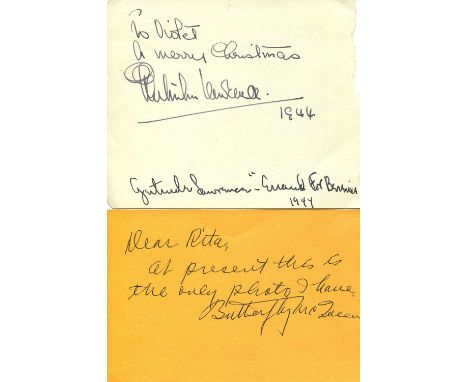 To Violet
A merry Christmas
Gertrude Lawrence.
1944
Gertrude Lawrence - Errand For Bernice
1944
Dear Rita,
at present this is
the only photo I have,
Butterfly McQueen